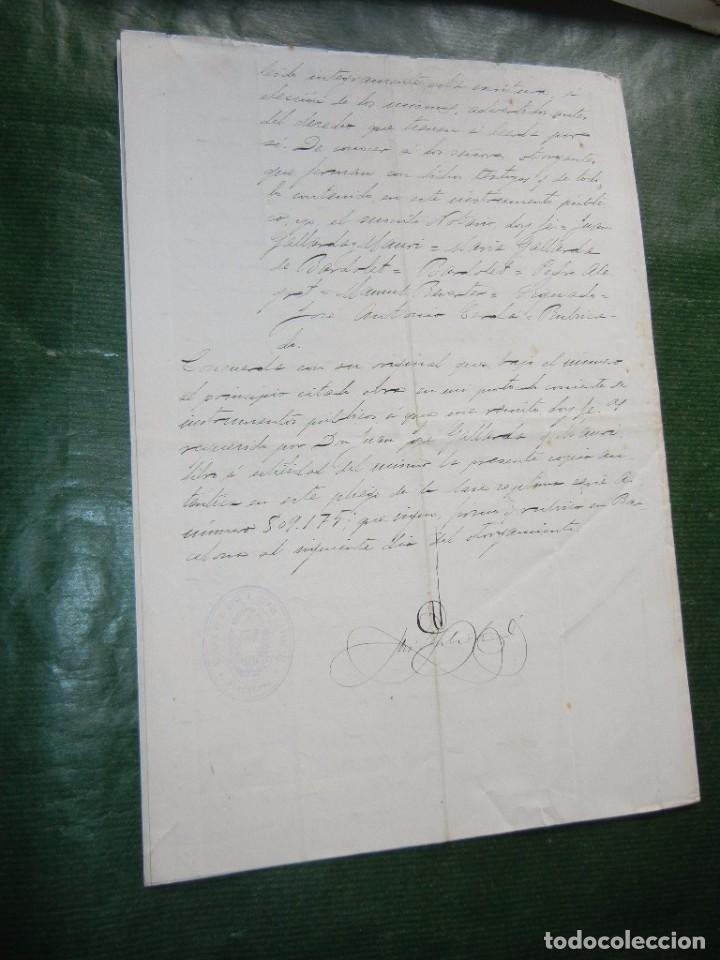 leido integramente esta escritura, á
elección de los mismos, advertidos antes
del derecho que tienen á leerla por
sí. De conocer á los señores otorgantes,
que firman con dichos testigos y de todo
lo contenido en este instrumento públi-
co, yo, el Notario, doy fé = Juan
Gallarda Mauri = Maria Gallarda
de Bardolet = Bardolet = Pedro Ale
= Manuel = Signado =
José Antonio = Rubrica-
do.
Concuerda con su original que bajo el número
al principio citado obra en mi protocolo corriente de
instrumentos públicos á que me remito doy fé. Y
requerido por Dn. Juan José Gallarda y Mauri
libro á utilidad del mismo la presente copia au-
tentica en este pliego de la clase septima serie A
número 809.175; que signo, firmo y rubrico en Bar-
celona al siguiente dia del otorgamiento.
todocoleccion
todocoleccion.net